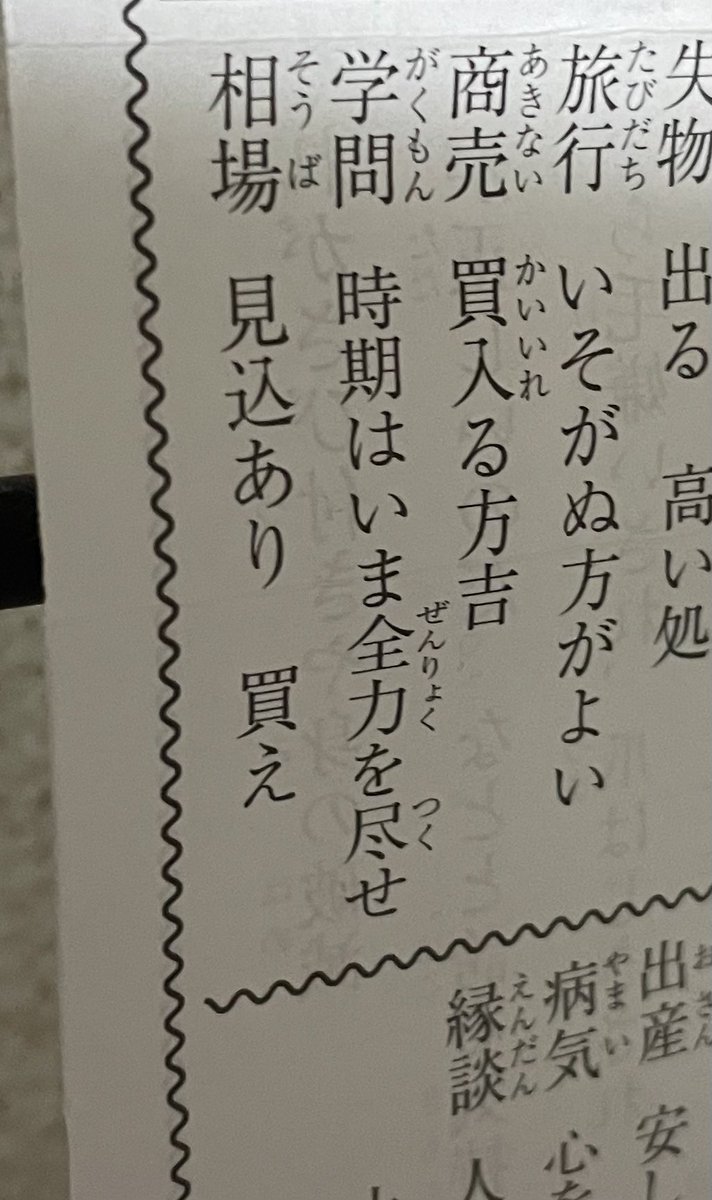 失物 出る 高い処
旅行 いそがぬ方がよい
たびだち
商売 買入る方吉
あきない かいいれ
学問 時期はいま全力を尽せ
がくもん ぜんりょく つく
相場 見込あり 買え
そうば
出産 安し
病気 心を
やまい
縁談 人
えんだん